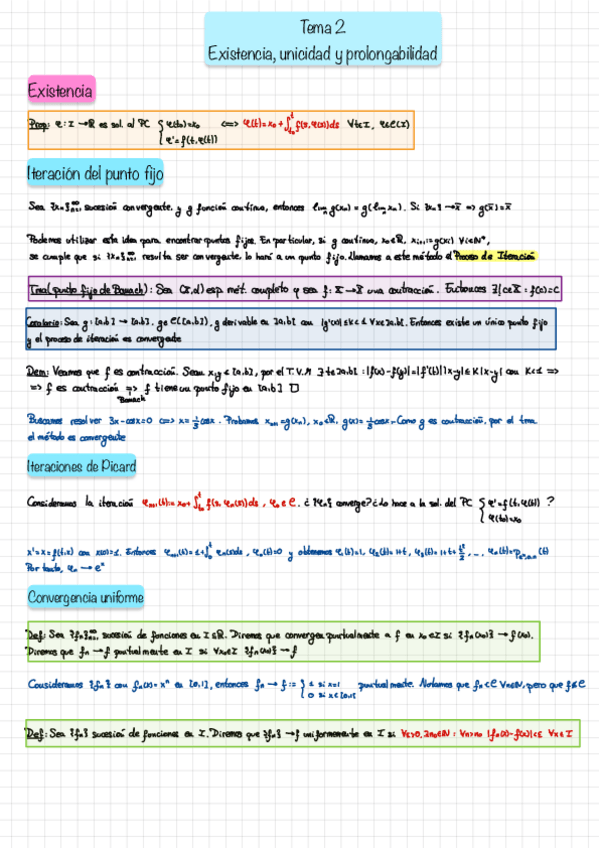 Tema 2
Existencia, unicidad y prolongabilidad
Existencia
Prop: φ: I → ℝ es sol. al PC { φ(t₀)=x₀ <=> φ(t)=x₀+∫ₜ₀ᵗ f(s,φ(s))ds ∀t∈I, φ∈C(I)
φ'=f(t,φ(t))
Iteración del punto fijo
Sea {xₙ}ₙ₌₁^∞ sucesión convergente y g función continua, entonces lim g(xₙ) = g(lim xₙ). Si {xₙ} → x̄ => g(x̄)=x̄
Podemos utilizar esta idea para encontrar puntos fijos. En particular, si g continua, x₀∈ℝ, xᵢ₊₁=g(xᵢ) ∀i∈ℕ*,
se cumple que si {xₙ}ₙ₌₁^∞ resulta ser convergente lo hará a un punto fijo. Llamamos a este método el Proceso de Iteración
Tma(punto fijo de Banach): Sea (X,d) esp. mét. completo y sea f: X → X una contracción. Entonces ∃!c∈X : f(c)=c
Corolario: Sea g: [a,b] → [a,b], g∈C([a,b]), g derivable en ]a,b[ con |g'(x)|≤k<1 ∀x∈]a,b[. Entonces existe un único punto fijo
y el proceso de iteración es convergente
Dem: Veamos que f es contracción. Sean x,y∈[a,b], por el T.V.M ∃t∈]a,b[ : |f(x)-f(y)|=|f'(t)||x-y|≤K|x-y| con K<1 =>
=> f es contracción => f tiene un punto fijo en [a,b] □
Banach
Buscamos resolver 3x-cosx=0 <=> x=1/3 cosx. Probamos xₙ₊₁=g(xₙ), x₀∈ℝ, g(x)=1/3 cosx. Como g es contracción, por el tma
el método es convergente
Iteraciones de Picard
Consideramos la iteración φₙ₊₁(t)=x₀+∫ₜ₀ᵗ f(s,φₙ(s))ds, φ₀∈C. ¿{φₙ} converge? ¿Lo hace a la sol. del PC { φ'=f(t,φ(t)) ?
φ(t₀)=x₀
x'=x=f(t,x) con x(0)=1. Entonces φₙ₊₁(t)=1+∫₀ᵗ φₙ(s)ds, φ₀(t)=0 y obtenemos φ₁(t)=1, φ₂(t)=1+t, φ₃(t)=1+t+t²/2, ..., φₙ(t)=P (t)
Por tanto, φₙ → eˣ
Convergencia uniforme
Def: Sea {fₙ}ₙ₌₁^∞ sucesión de funciones en I⊆ℝ. Diremos que converge puntualmente a f en x₀∈I si {fₙ(x₀)} → f(x₀).
Diremos que fₙ → f puntualmente en I si ∀x₀∈I {fₙ(x₀)} → f
Consideramos {fₙ} con fₙ(x)=xⁿ en [0,1], entonces fₙ → f := { 1 si x=1 puntualmente. Notamos que fₙ∈C ∀n∈ℕ, pero que f∉C
0 si x∈[0,1[
Def: Sea {fₙ} sucesión de funciones en I. Diremos que {fₙ} → f uniformemente en I si ∀ε>0, ∃n₀∈ℕ : ∀n>n₀ |fₙ(x)-f(x)|<ε ∀x∈I